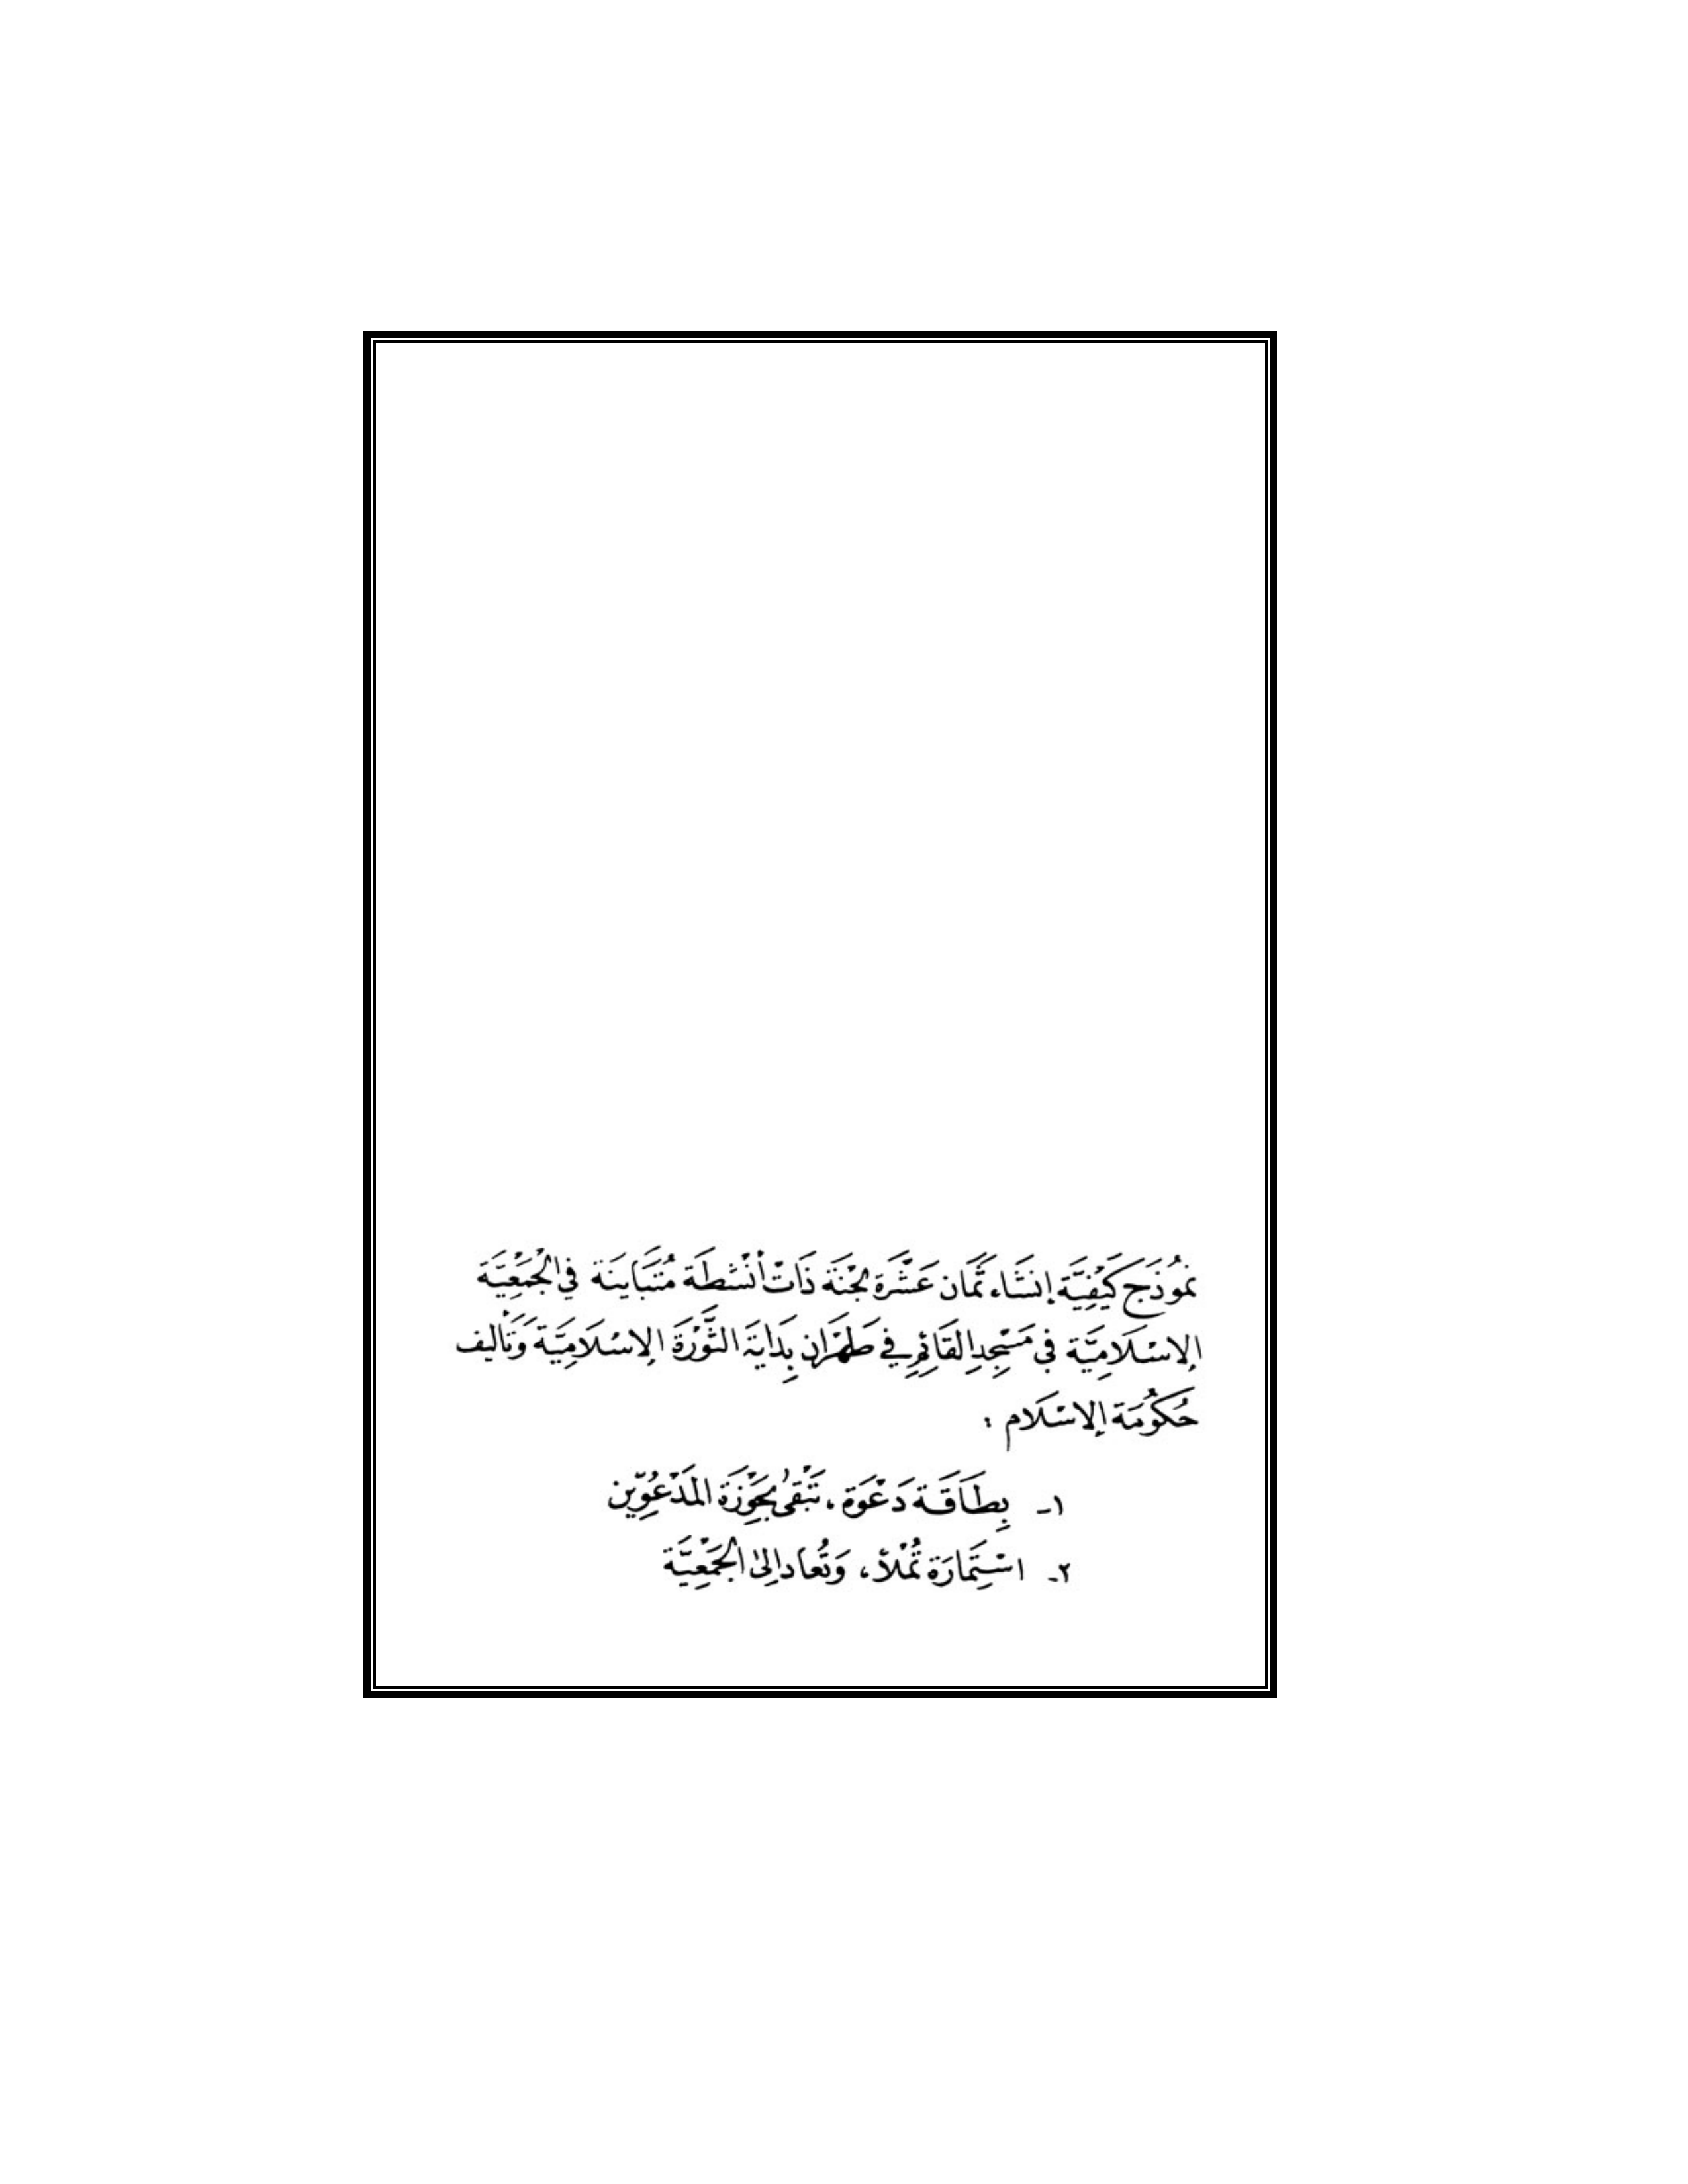 نَمُوذَج كَيْفِيَّة إنشَاء ثَمَان عَشَرَة لجْنَة ذَات أنْشطَة مُتَبَاينَة في الْجَمْعِيَّة
الإسْلَامِيَّة في مَسْجِدِ القَائِمِ في طَهْرَان بِدَايَة الثَّوْرَة الإسْلَامِيَّة وَتَأليف
حُكُومَة الإسْلَام :
١- بِطَاقَة دَعْوَة ، تَبْقَى بِحَوْزَة المَدْعُوِّين
٢- اسْتِمَارَة تُمْلأ ، وَتُعَاد إلى الجَمْعِيَّة